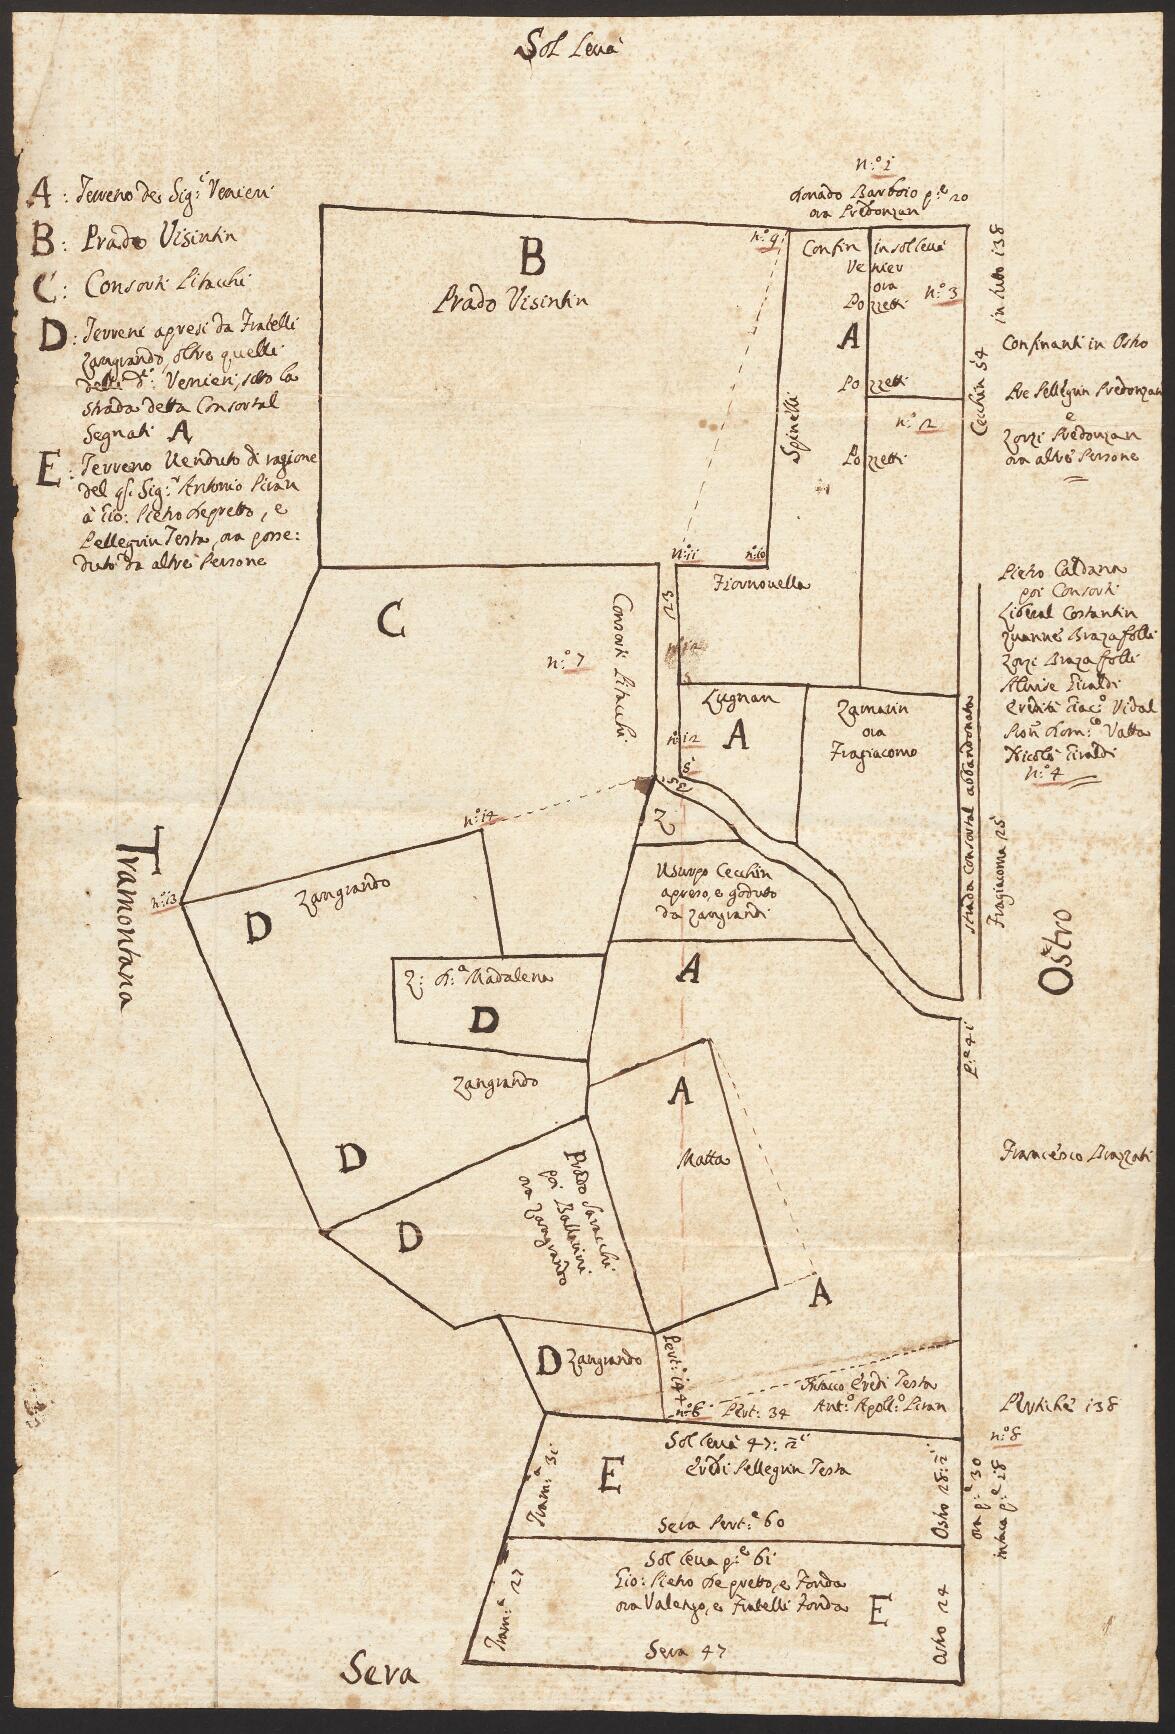 Sol Leuà
A: Terreno de Sig:ri Venieri
B: Prado Visintin
C: Consorti Litacchi
D: Terreni apresi da Fratelli
Zangrando, oltre quelli
delli d:ti Venieri, sotto la
strada detta Consortal
Segnati A
E: Terreno Venduto di ragione
del q: Sig:r Antonio Piran
à Gio: Pietro Depretto, e
Pellegrin Testa, ora posse:
duto da altre Persone
n:o 1
Donado Barboio p:e 20
ora Predonzan
B
Prado Visintin
n:o 9
Confin in sol leuà
Venier
ora
Pozzetti
n:o 3
A
Pozzetti
n:o 2
Pozzetti
Spinelli
Cecchin 54
in tutto 138
Confinanti in Ostro
Pre Pellegrin Predonzan
e
Zorzi Predonzan
ora altre Persone
n:o 11
n:o 10
Fiornovella
23
n:o 12
Pietro Caldana
poi Consorti
Liberal Costantin
Zuanne Brazafolli
Zorzi Brazafolli
Alvise Giraldi
Erediti Giac:o Vidal
Dom:co Vatta
Nicolò Giraldi
n:o 4
C
n:o 7
Consorti Litacchi
Lugnan
A
n:o 12
5
Zamarin
ora
Fragiacomo
strada Consortal abbandonata
Fragiacomo 25
n:o 14
Z
Tramontana
n:o 13
Zangrando
D
Usurpo Cecchin
apreso, e goduto
da Zangrandi
A
Ostro
Z: D:a Madalena
D
Zangrando
P:e 41
A
Matta
D
Francesco Brazzati
D
Prado Saracchi
poi Ballarini
ora Zangrando
A
D Zangrando
Pert: 144
n:o 6
Pert: 34
Intacco Eredi Testa
Ant:o Apoll:o Piran
Pertiche 138
n:o 8
Sol leuà 47:
Eredi Pellegrin Testa
E
Tram:a 31
Ostro 28:
ora p:e 30
intaca p:e 28
Seva Pert:e 60
Sol leua p:e 61
Gio: Pietro Depretto, e Fonda
ora Valenzo, e Fratelli Fonda
E
Tram:a 27
Ostro 24
Seva 47
Seva